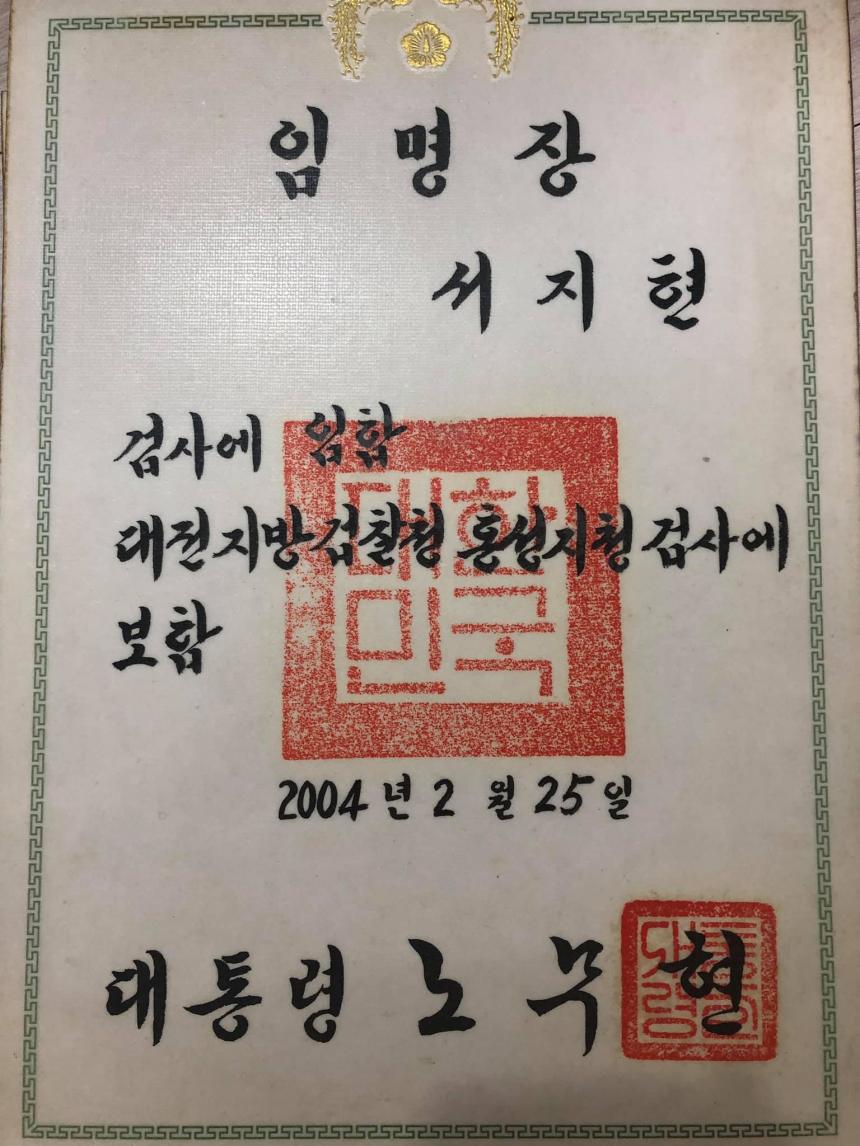 임 명 장
서 지 현
검사에 임함
대전지방검찰청 홍성지청 검사에
보함
대한
민국
2004 년 2 월 25 일
대통령 노 무 현